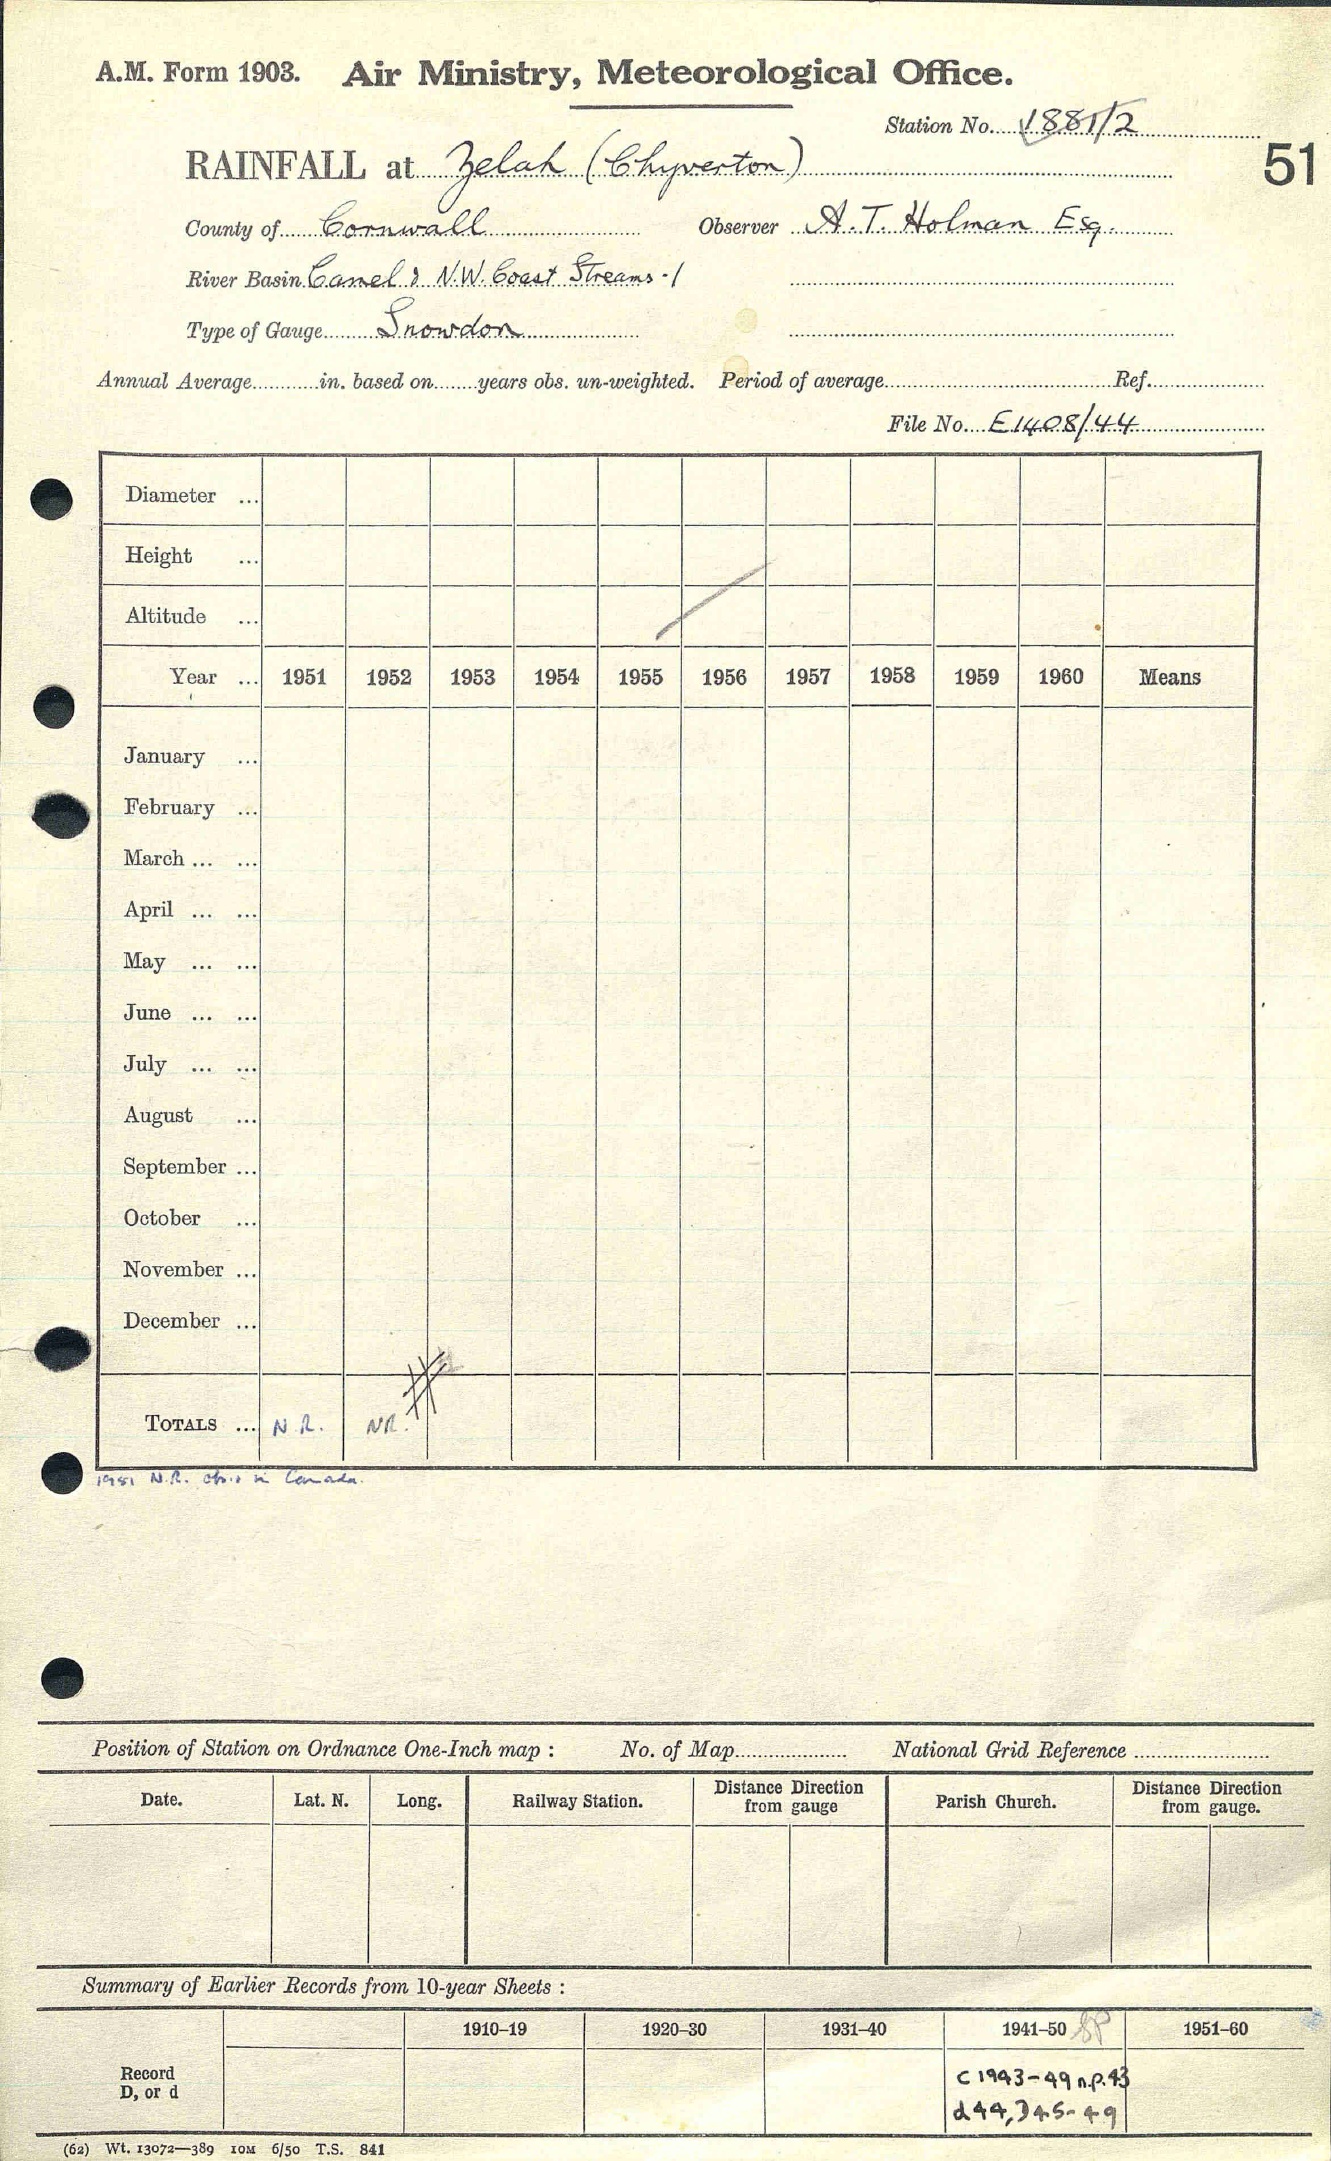 A.M. Form 1903. Air Ministry, Meteorological Office.
Station No. 1881/2
RAINFALL at Zelah (Chyverton)
51
County of Cornwall Observer A. T. Holman Esq.
River Basin Camel & N.W. Coast Streams - 1
Type of Gauge Snowdon
Annual Average in. based on years obs. un-weighted. Period of average Ref.
File No. E1408/44
Diameter ...
Height ...
Altitude ...
Year ... 1951 1952 1953 1954 1955 1956 1957 1958 1959 1960 Means
January ...
February ...
March ... ...
April ... ...
May ... ...
June ... ...
July ... ...
August ...
September ...
October ...
November ...
December ...
TOTALS ... N.R. NR.
1951 N.R. obs. in Canada.
Position of Station on Ordnance One-Inch map : No. of Map National Grid Reference
Date. Lat. N. Long. Railway Station. Distance Direction from gauge Parish Church. Distance Direction from gauge.
Summary of Earlier Records from 10-year Sheets :
1910–19 1920–30 1931–40 1941–50 1951–60
Record
D, or d
C 1943-49 n.p. 43
d 44, D 45-49
(62) Wt. 13072—389 10M 6/50 T.S. 841